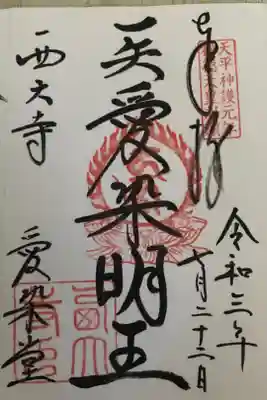 奉拝
天平神護元
令和三年
月二十二日
愛染明王
西大寺
愛染堂